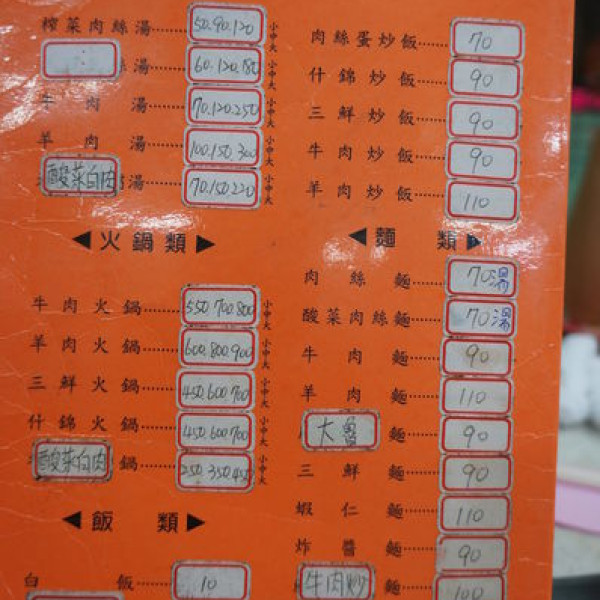 榨菜肉絲湯 50.90.120 小中大
絲湯 60.120.180 小中大
牛肉湯 70.120.250 小中大
羊肉湯 100.150.300 小中大
酸菜白肉湯 70.150.220 小中大
◀火鍋類▶
牛肉火鍋 550.700.800 小中大
羊肉火鍋 600.800.900 小中大
三鮮火鍋 450.600.700 小中大
什錦火鍋 450.600.700 小中大
酸菜白肉鍋 250.350.450 小中大
◀飯類▶
白飯 10
肉絲蛋炒飯 70
什錦炒飯 90
三鮮炒飯 90
牛肉炒飯 90
羊肉炒飯 110
◀麵類▶
肉絲麵 70湯
酸菜肉絲麵 70湯
牛肉麵 90
羊肉麵 110
大魯麵 90
三鮮麵 90
蝦仁麵 110
炸醬麵 90
牛肉炒麵 100